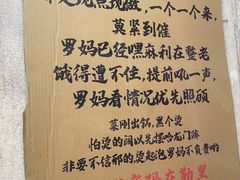 一个一个来,
莫紧到催
罗妈已经嘿麻利在整老
饿得遭不住,提前吼一声,
罗妈看情况优先照顾
菜刚出锅,黑个烫
怕烫的阔以先摆哈龙门阵
非要不信邪的,烫起泡罗妈不负责哟